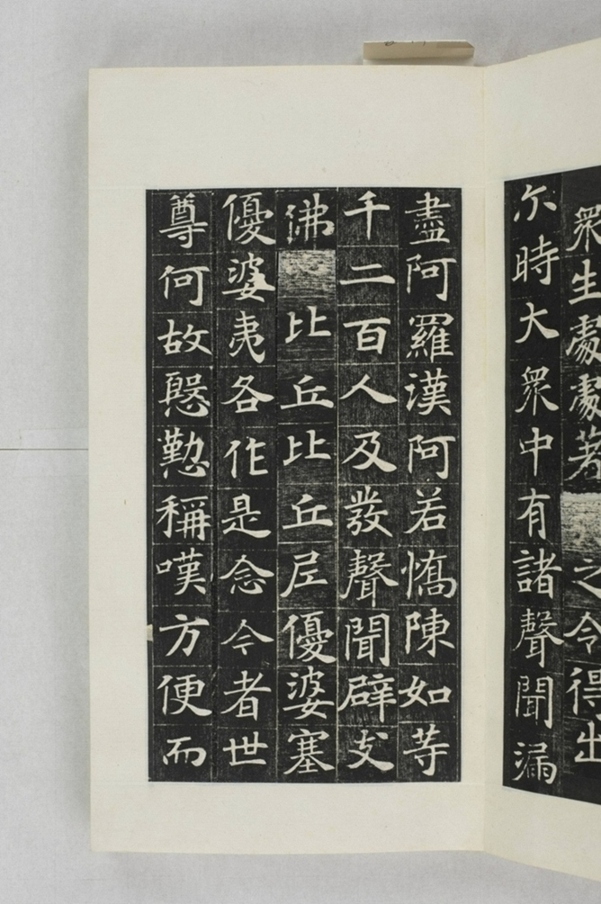 衆生處處著之令得出
尒時大衆中有諸聲聞漏
盡阿羅漢阿若憍陳如等
千二百人及發聲聞辟支
佛比丘比丘尼優婆塞
優婆夷各作是念今者世
尊何故慇懃稱嘆方便而